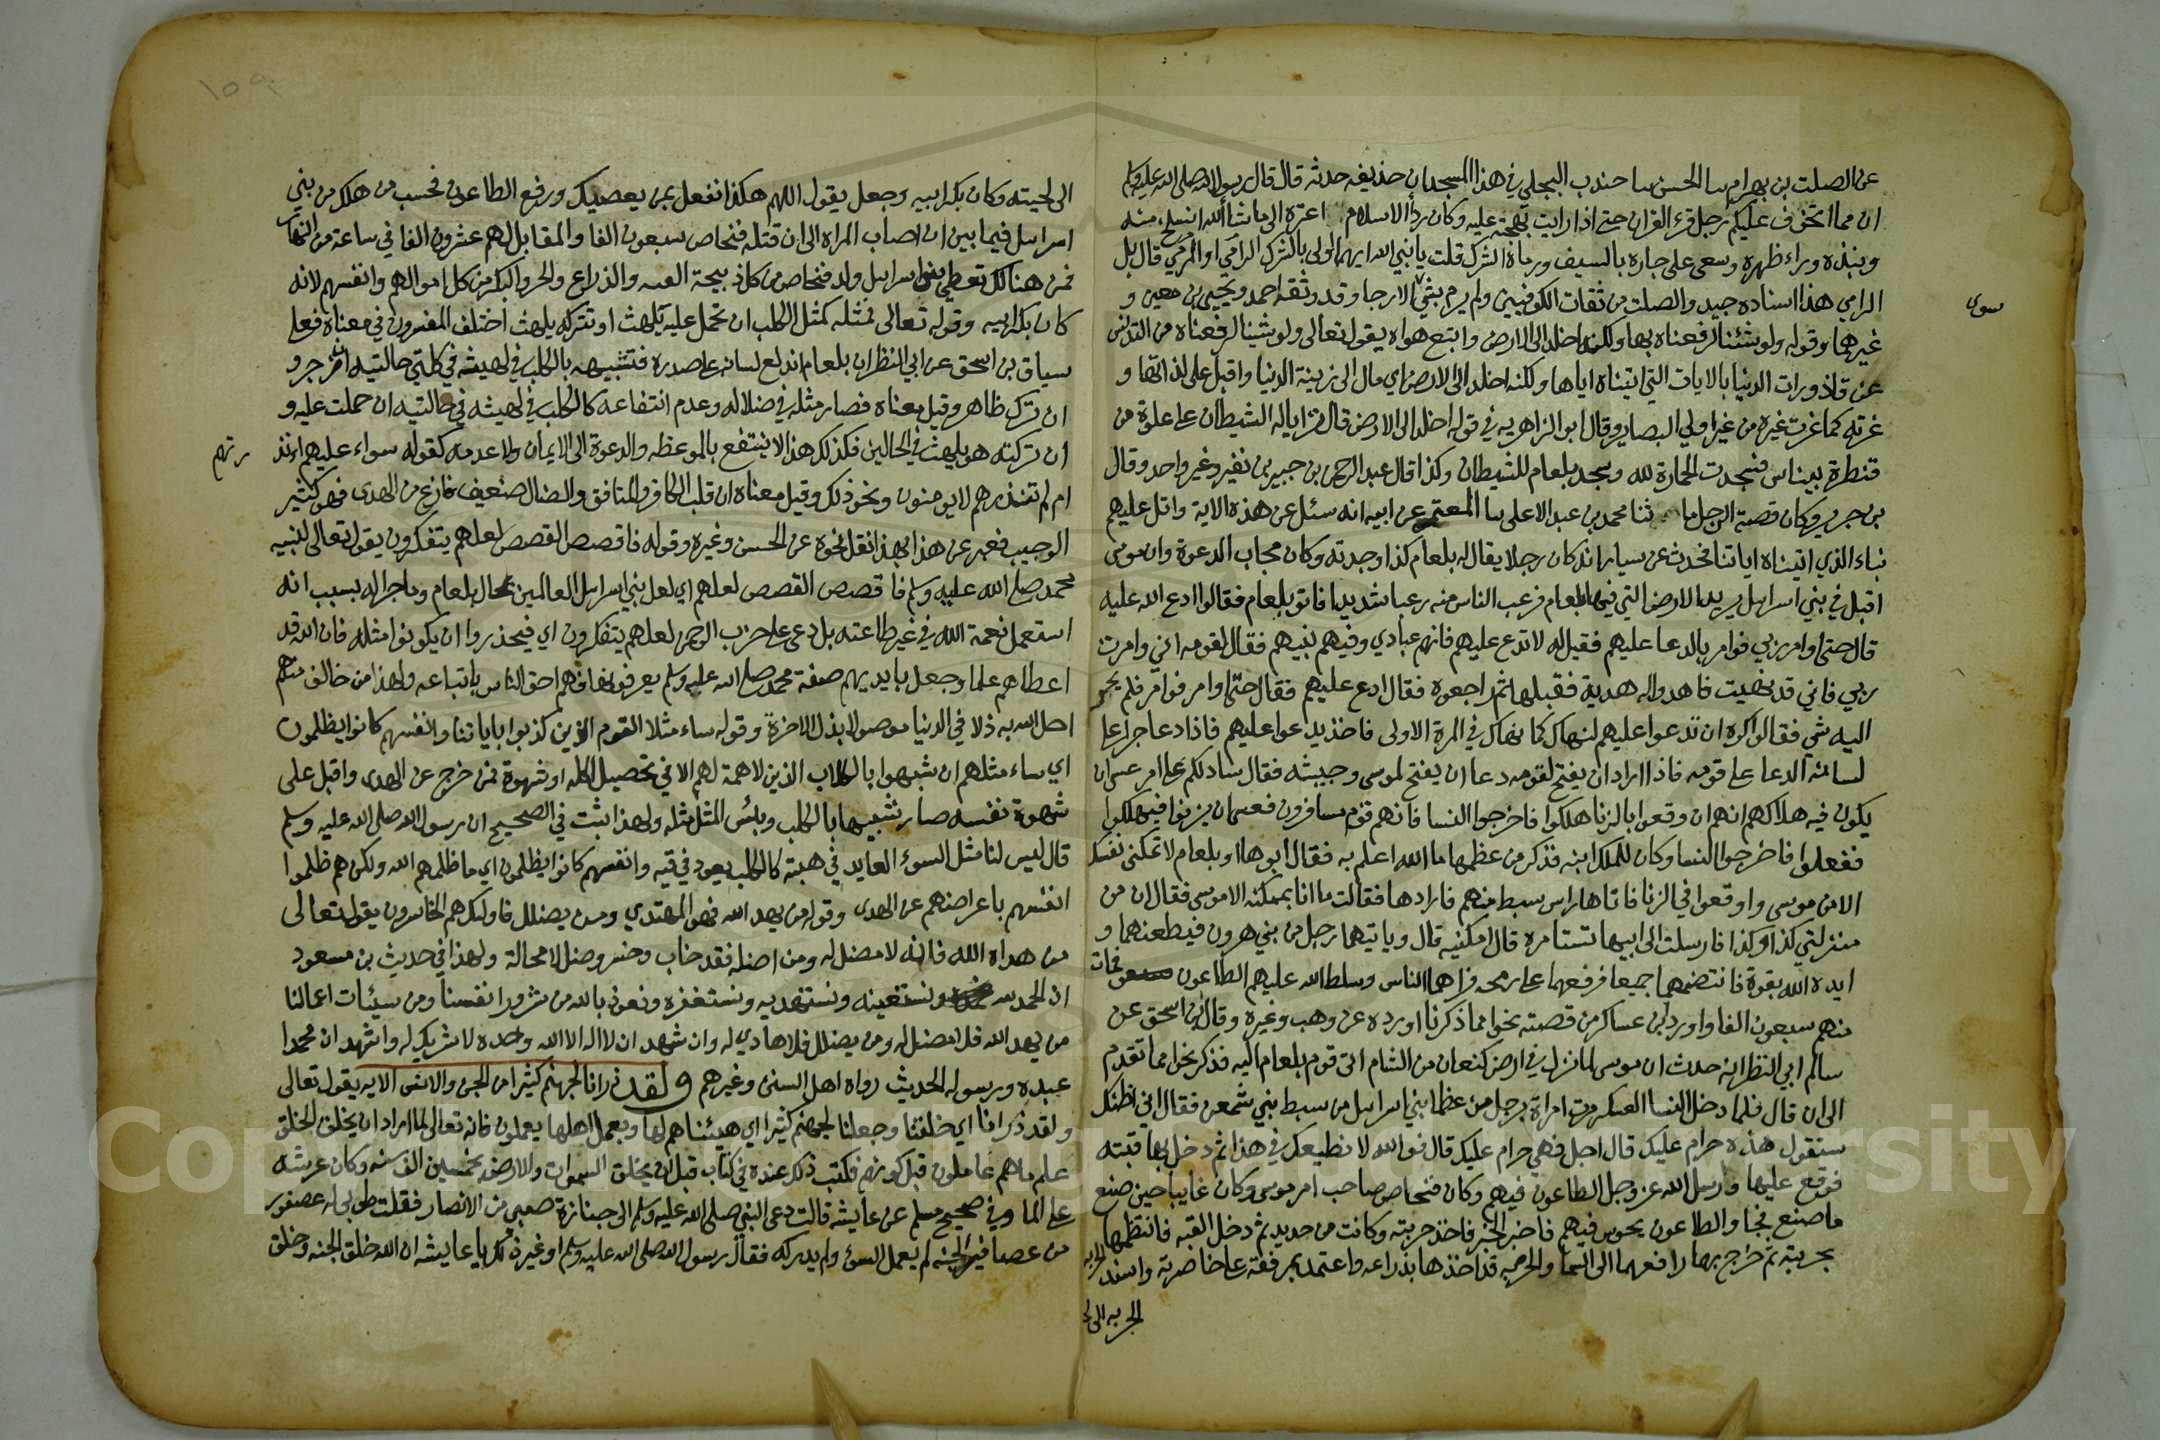 عن الصلت بن بهرام سا الحسن سا حندب البجلي في هذا المسجد ان حذيفه حدثه قال قال رسول الله صلى الله عليه وسلم
ان مما اتخوف عليكم رجل قرء القران حتى اذا رايت بهجته عليه وكان ردأ الاسلام اعتره الى ما شأ الله انسلخ منه
ونبذه وراء ظهره وسعى على جاره بالسيف ورماه الشرك قلت يا نبي الله ايهما اولى بالشرك الرامي او المرمي قال بل
سوى
الرامي هذا اسناده جيد والصلت من ثقات الكوفيين ولم يرم بشي الارجا وقد وثقه احمد ويحيى بن معين و
غيرهما وقوله ولو شئنا لرفعناه بها ولكنه اخلد الى الارض واتبع هواه يقول تعالى ولو شينا لرفعناه من التدنس
عن قاذورات الدنيا بالايات التي اتيناه اياها ولكنه اخلد الى الارض اي مال الى زينة الدنيا واقبل على لذاتها و
غرته كما غرت غيره من غير اولي البصاير وقال ابو الزاهريه في قوله اخلد الى الارض قال تزايا له الشيطان على علوة من
قنطرة بيناس فسجدت الحمارة لله وسجد بلعام للشيطان وكذا قال عبد الرحمن بن جبير بن نفير وغير واحد وقال
بن جرير وكان قصة الرجل ما ثنا محمد بن عبد الاعلى سا المعتمر عن ابيه انه سئل عن هذه الاية واتل عليهم
نباء الذي اتيناه اياتنا فحدث عن سيار انه كان رجلا يقال له بلعام كذا وجدته وكان مجاب الدعوة وان موسى
اقبل في بني اسرايل يريد الارض التي فيها بلعام فرعب الناس منه رعبا شديدا فاتو بلعام فقالوا ادع الله عليه
قال حتى اوامر ربي فوامر بالدعا عليهم فقيل له لا تدع عليهم فانهم عبادي وفيهم نبيهم فقال لقومه اني وامرت
ربي فاني قد نهيت فاهدوا له هدية فقبلها ثم راجعوه فقال ادع عليهم فقال حتى اوامر فوامر فلم يحر
اليه شي فقالوا لو كره ان تدعوا عليهم لنهاك كما نهاك في المرة الاولى فاخذ يدعوا عليهم فاذا دعا جرا على
لسانه الدعا على قومه فاذا اراد ان يفتح لقومه دعا ان يفتح لموسى وجيشه فقال سادلكم على امر عسى ان
يكون فيه هلاكهم انهم ان وقعوا بالزنا هلكوا فاخرجوا النسا فانهم قوم مسافرون فعسى ان يزنوا فيهلكوا
ففعلوا فاخرجوا النسا وكان للملك ابنه فذكر من عظمها ما الله اعلم به فقال ابوها او بلعام لا تمكنى نفسك
الا من موسى واوقعوا في الزنا فاتاها راس سبط منهم فارادها فقالت ما انا بممكنه الا موسى فقال ان من
منزلتي كذا وكذا فارسلت الى ابيها تستامره قال امكنيه قال وياتيهما رجل من بني هرون فيطعنهما و
ايده الله بقوة فانتضمهما جميعا فرفعهما على رمحه فراهما الناس وسلط الله عليهم الطاعون فمات
منهم سبعون الفا واورد ابن عساكر من قصته نحوا مما ذكرنا اورده عن وهب وغيره وقال ابن اسحق عن
سالم ابي النظر انه حدث ان موسى لما نزل في ارض كنعان من الشام اتى قوم بلعام اليه فذكر نحوا مما تقدم
الى ان قال فلما دخل النسا العسكر مرت امراة برجل من عظما بني اسرايل من سبط بني شمعون فقال اني اظنك
ستقول هذه حرام عليك قال اجل فهي حرام عليك قال فو الله لا نطيعك في هذا ثم دخل بها قبته
فوقع عليها وارسل الله عز وجل الطاعون فيهم وكان فنحاص صاحب امر موسى وكان غايبا حين صنع
ما صنع فجا والطاعون يحوس فيهم فاخبر الخبر فاخذ حربته وكانت من حديد ثم دخل القبه فانتظمها
بحربته ثم خرج بها رافعهما الى السما والحربه قد اخذها بذراعه واعتمد بمرفقه على خاصرته واسند الحربه
الحربه الى لح
١٥٩
الى لحيته وكان بكر ابيه وجعل يقول اللهم هكذا نفعل بمن يعصيك ورفع الطاعون فحسب من هلك من بني
اسرايل فيما بين ان اصاب المراه الى ان قتله فنحاص سبعون الفا والمقابل لهم عشرون الفا في ساعة من النهار
فمن هنالك تعطي بنوا اسرايل ولد فنحاص من كل ذبيحة القبه والذراع والحر والبكر من كل اموالهم وانفسهم لانه
كان بكر ابيه وقوله تعالى فمثله كمثل الكلب ان تحمل عليه يلهث او تتركه يلهث اختلف المفسرون في معناه فعلى
سياق بن اسحق عن ابي النظر ان بلعام اندلع لسانه على صدره فتشبيهه بالكلب في لهيثه في كلتي حالتيه ان زجر و
ان ترك ظاهر وقيل معناه فصار مثله في ضلاله وعدم انتفاعه كالكلب في لهيثه في حالتيه ان حملت عليه و
ان تركته هو يلهث في الحالين فكذلك هذا لا ينتفع بالموعظه والدعوة الى الايمان ولا عدمه كقوله سواء عليهم اانذ
رتهم
ام لم تنذرهم لا يومنون ونحو ذلك وقيل معناه ان قلب الكافر والمنافق والضال ضعيف فازع من الهدى فهو كثير
الوجيب فعبر عن هذا بهذا نقل نحوه عن الحسن وغيره وقوله فاقصص القصص لعلهم يتفكرون يقول تعالى لنبيه
محمد صلى الله عليه وسلم فاقصص القصص لعلهم اي لعل بني اسرايل العالمين بحال بلعام وما جرا له بسبب انه
استعمل نعمة الله في غير طاعته بل دعى على حزب الرحمن لعلهم يتفكرون اي فيحذروا ان يكونوا مثله فان الله قد
اعطاهم علما وجعل بايديهم صفة محمد صلى الله عليه وسلم يعرفونها فهم احق الناس باتباعه ولهذا من خالف منهم
احل الله به ذلا في الدنيا موصولا بذل الاخرة وقوله ساء مثلا القوم الذين كذبوا باياتنا وانفسهم كانوا يظلمون
اي ساء مثلهم ان شبهوا بالكلاب الذين لا همة لهم الا في تحصيل اكله او شهوة فمن خرج عن الهدى واقبل على
شهوة نفسه صار شبيها بالكلب وبئس المثل مثله ولهذا ثبت في الصحيح ان رسول الله صلى الله عليه وسلم
قال ليس لنا مثل السوء العايد في هبته كالكلب يعود في قيه وانفسهم كانوا يظلمون اي ما ظلمهم الله ولكن هم ظلموا
انفسهم باعراضهم عن الهدى وقوله من يهد الله فهو المهتدي ومن يضلل فاولئك هم الخاسرون يقول تعالى
من هداه الله فانه لا مضل له ومن اضله فقد خاب وخسر وضل لا محالة ولهذا في حديث بن مسعود
ان الحمد لله نحمده ونستعينه ونستهديه ونستغفره ونعوذ بالله من شرور انفسنا ومن سيئات اعمالنا
من يهد الله فلا مضل له ومن يضلل فلا هادي له وان شهد ان لا اله الا الله وحده لا شريك له واشهد ان محمدا
عبده ورسوله الحديث رواه اهل السنن وغيرهم ولقد ذرانا لجهنم كثيرا من الجن والانس الايه يقول تعالى
ولقد ذرانا اي خلقنا وجعلنا لجهنم كثيرا اي هيئناهم لها وبعمل اهلها يعملون فانه تعالى لما اراد ان يخلق الخلق
علم ما هم عاملون قبل كونهم فكتب ذلك عنده في كتاب قبل ان يخلق السموات والارض بخمسين الف سنه وكان عرشه
على الما وفي صحيح مسلم عن عايشه قالت دعى النبي صلى الله عليه وسلم الى جنازة صبي من الانصار فقلت طوبى له عصفور
من عصافير الجنه لم يعمل السوء ولم يدركه فقال رسول الله صلى الله عليه وسلم او غير ذلك يا عايشه ان الله خلق الجنه وخلق